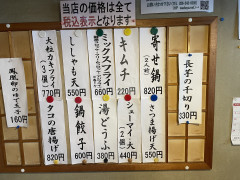 当店の価格は全て
税込表示となります
長芋の千切り
330円
寄せ鍋
(2人前)
820円
さつま揚げ天
550円
キムチ
220円
シューマイ・大
(2個)
440円
ミックスフライ
660円
湯どうふ
380円
ししゃも天
550円
鍋餃子
600円
大粒カキフライ
(3個)
770円
タコの唐揚げ
820円
160円